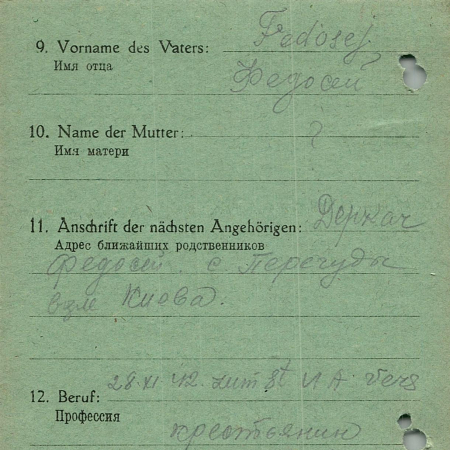 9. Vorname des Vaters: Fedosej
Имя отца Федосей
10. Name der Mutter: ?
Имя матери
11. Anschrift der nächsten Angehörigen: Деркач
Адрес ближайших родственников
Федосей с. Перегуды
взле Киева.
28 XI 42. mit St VI A. Vers
12. Beruf:
Профессия
крестьянин